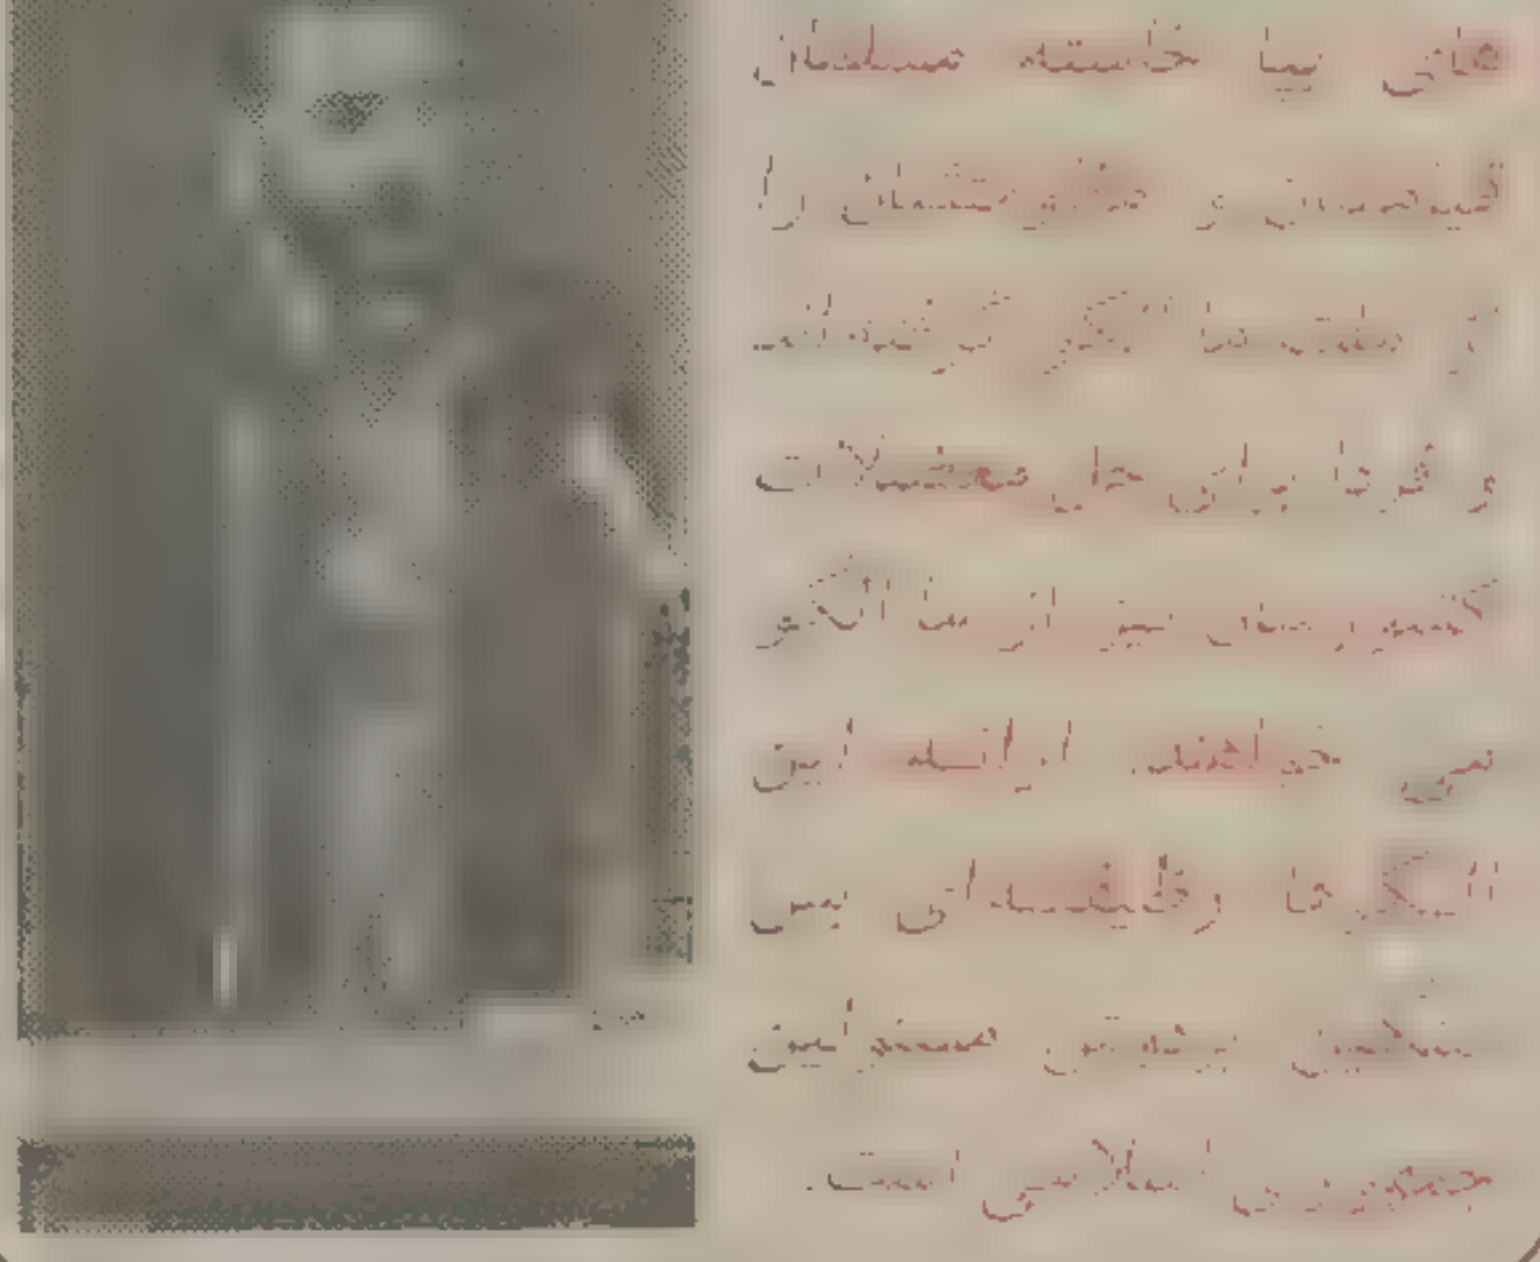 های بپا خاسته مسلمان
را
از ملت ما الگو گرفته‌اند
و فردا برای حل معضلات
کشورشان نیز از ما الگو
می خواهند ارائه این
الگوها وظیفه‌ای بس
سنگین بدوش مسئولین
جمهوری اسلامی است